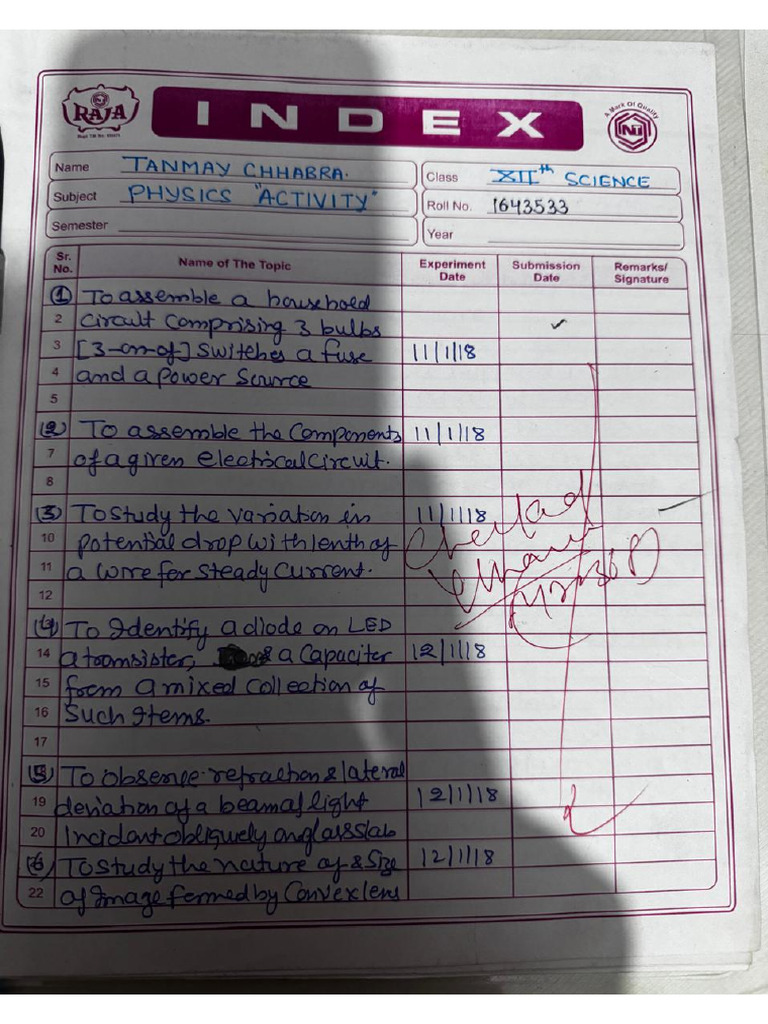 RAJA
Regd TM No. 600471
INDEX
A Mark Of Quality
NT
Name TANMAY CHHABRA.
Class XIIth SCIENCE
Subject PHYSICS "ACTIVITY"
Roll No. 1643533
Semester
Year
Sr. No. Name of The Topic Experiment Date Submission Date Remarks/ Signature
(1) To assemble a household
2 circuit comprising 3 bulbs ✓
3 [3-on-of] switches a fuse 11/1/18
4 and a power source
5
(2) To assemble the components 11/1/18
7 of a given electrical circuit.
8
(3) To study the variation in 11/1/18
10 potential drop with lenth of
11 a wire for steady current.
12
(4) To Identify a diode an LED
14 a transister, & a capaciter 12/1/18
15 from a mixed collection of
16 such items.
17
(5) To observe refraction & lateral
19 deviation of a beam of light 12/1/18
20 Incident obliquely on glass slab
(6) To study the nature of & size 12/1/18
22 of Image formed by convex lens
Checked